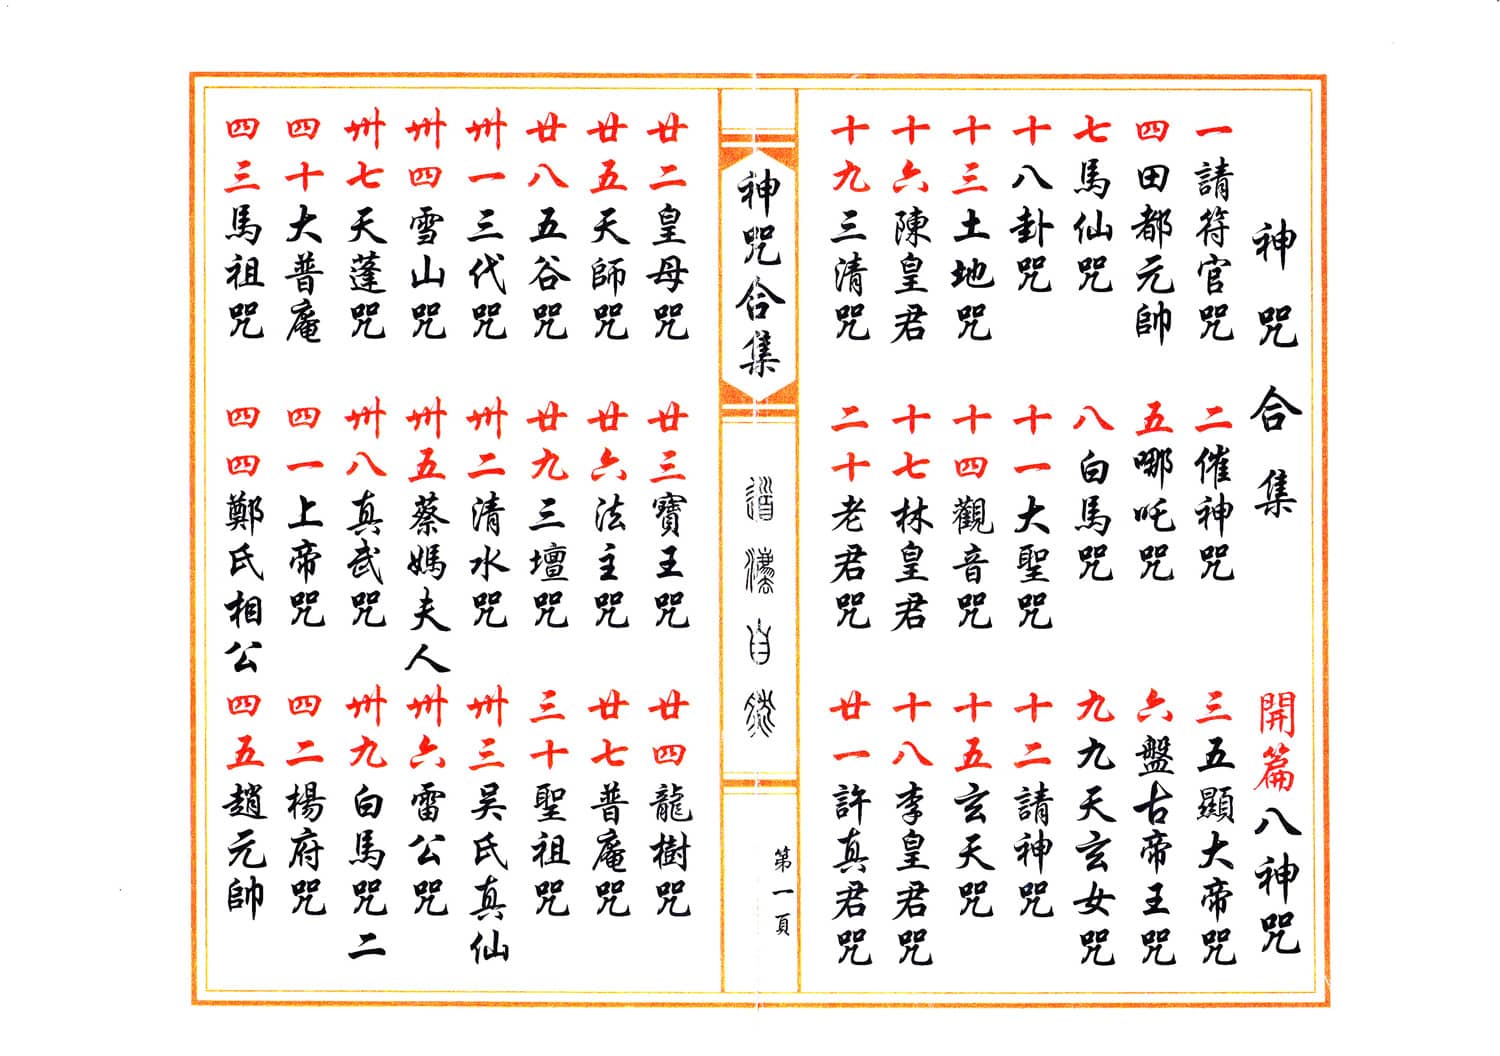 神咒合集
開篇八神咒
一請符官咒
二催神咒
三五顯大帝咒
四田都元帥
五哪吒咒
六盤古帝王咒
七馬仙咒
八白馬咒
九九天玄女咒
十八卦咒
十一大聖咒
十二請神咒
十三土地咒
十四觀音咒
十五玄天咒
十六陳皇君
十七林皇君
十八李皇君咒
十九三清咒
二十老君咒
廿一許真君咒
神咒合集
道法自然
第一頁
廿二皇母咒
廿三寶王咒
廿四龍樹咒
廿五天師咒
廿六法主咒
廿七普庵咒
廿八五谷咒
廿九三壇咒
三十聖祖咒
卅一三代咒
卅二清水咒
卅三吴氏真仙
卅四雪山咒
卅五蔡媽夫人
卅六雷公咒
卅七天蓬咒
卅八真武咒
卅九白馬咒二
四十大普庵
四一上帝咒
四二楊府咒
四三馬祖咒
四四鄭氏相公
四五趙元帥